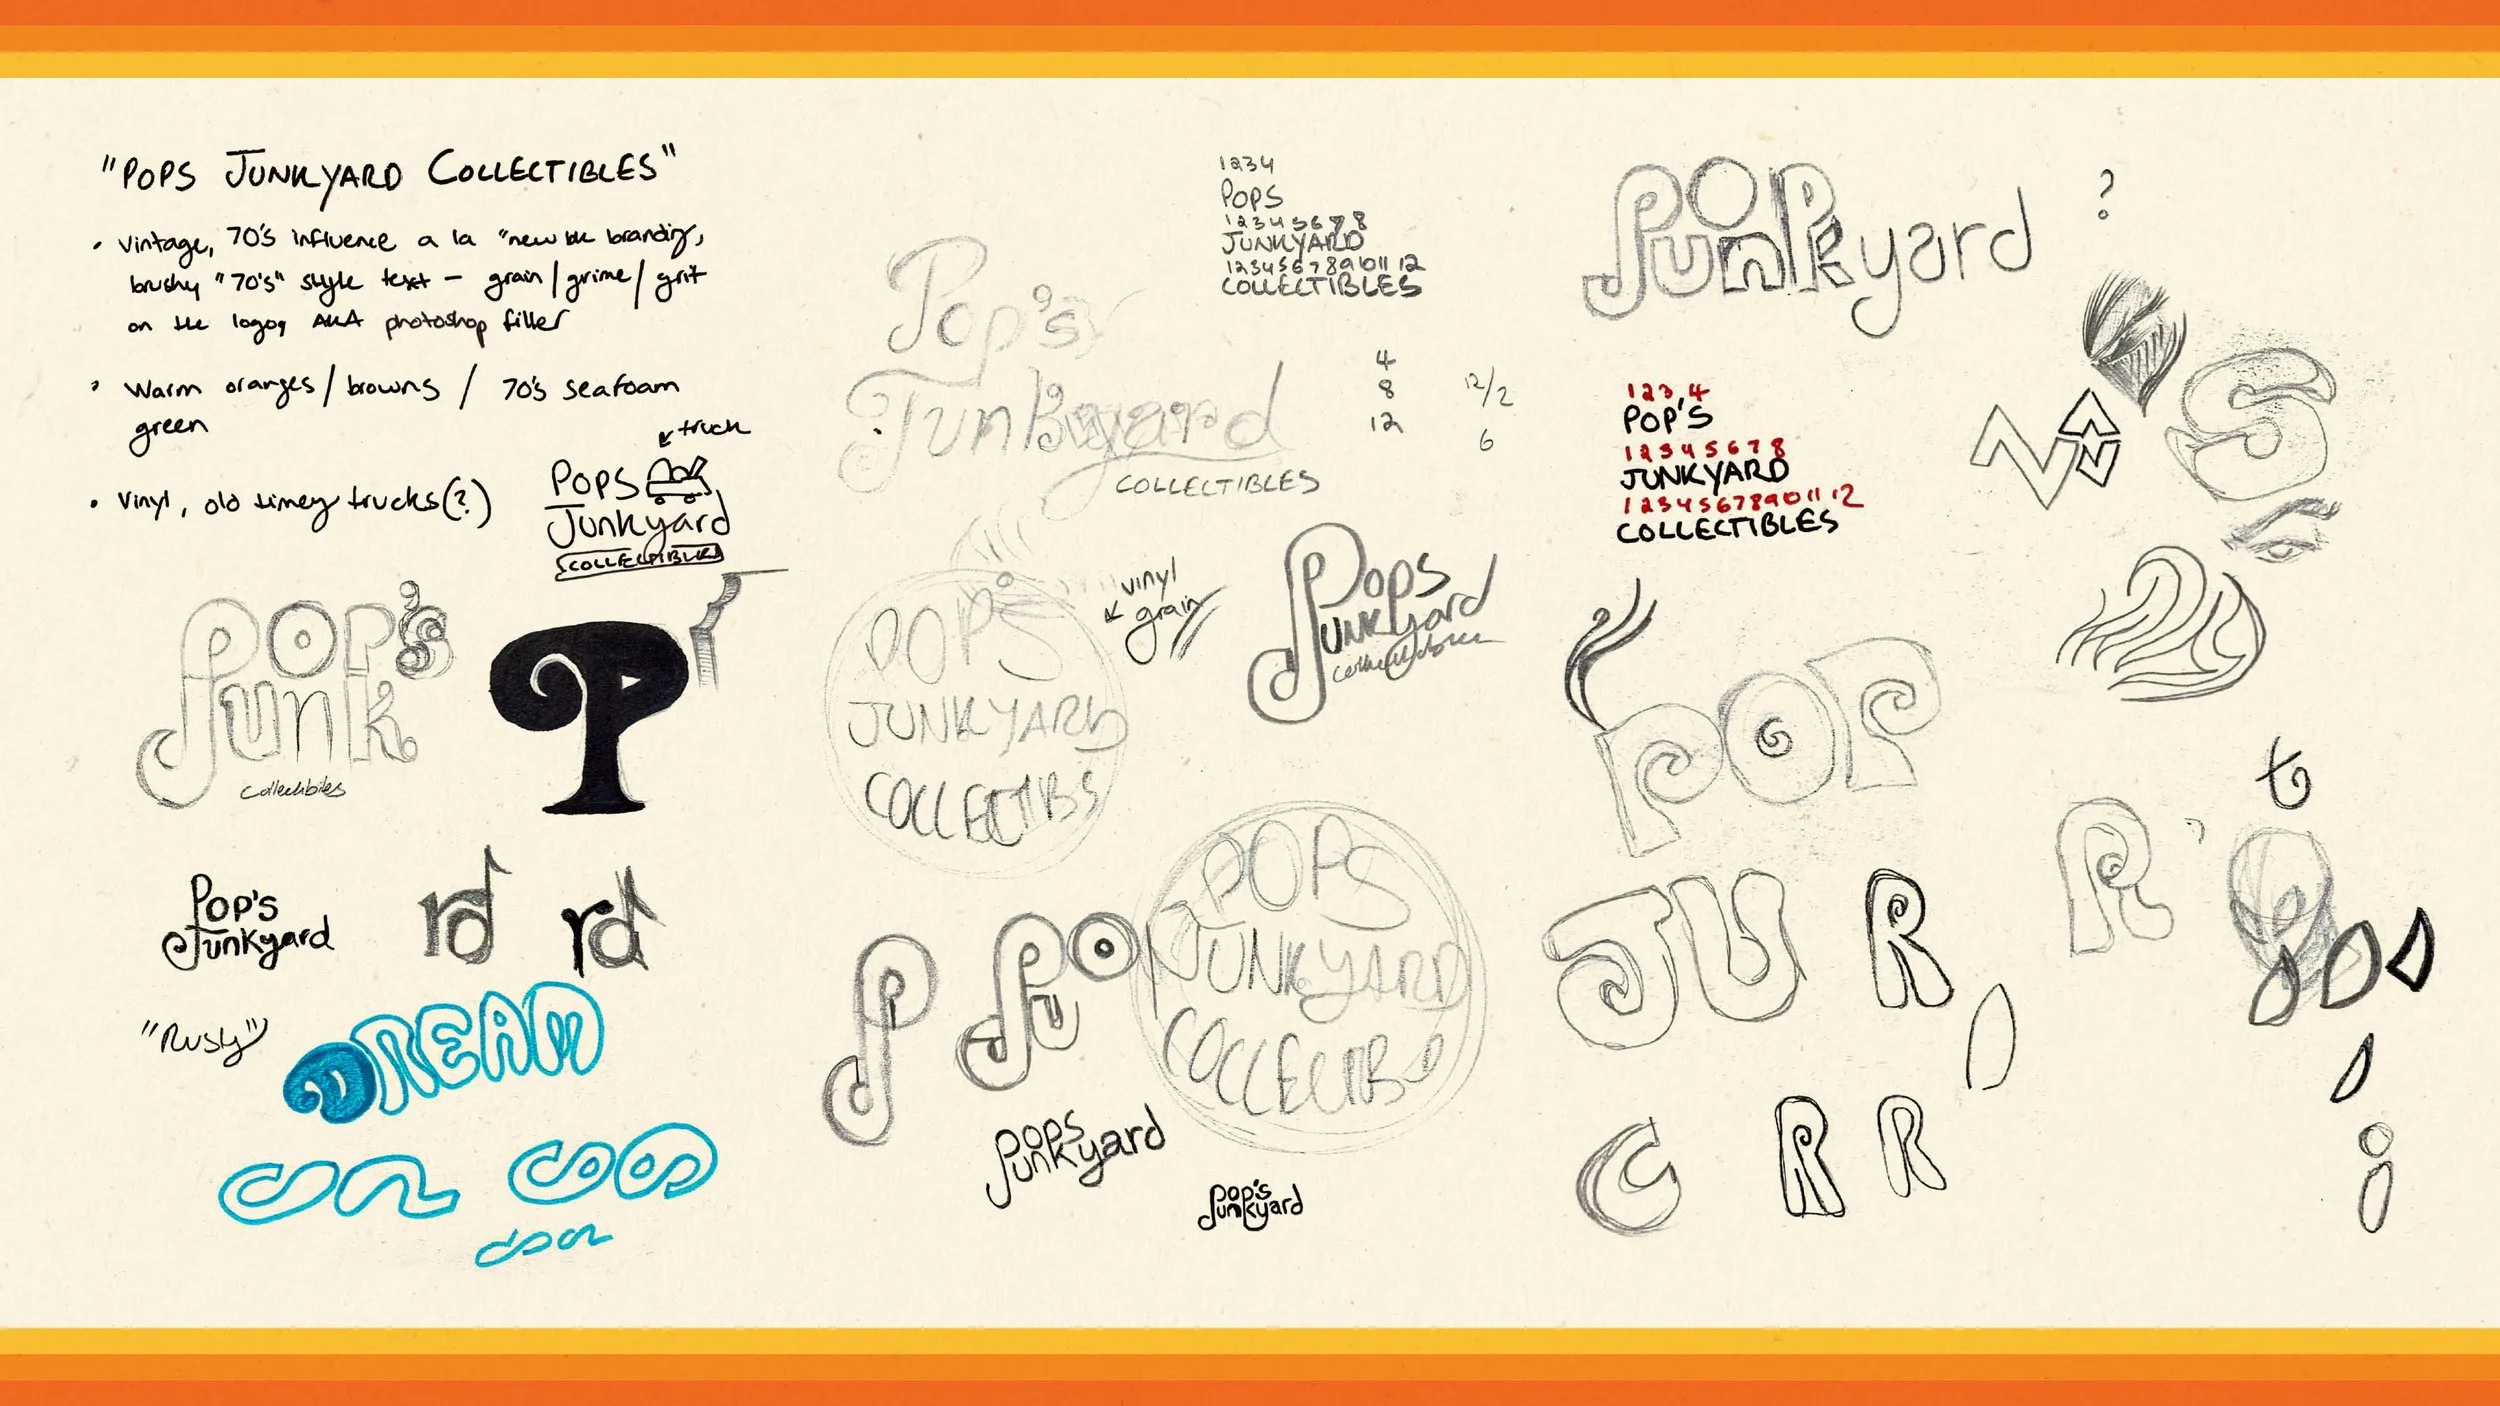 "POPS JUNKYARD COLLECTIBLES"
• Vintage, 70's influence a la "new bk branding,
brushy "70's" style text – grain/grime/grit
on the logo, AKA photoshop filter
• Warm oranges/browns / 70's seafoam
green
• Vinyl, old timey trucks(?)
truck
POPS
Junkyard
COLLECTIBLES
POP'S
Junk
collectibiles
P
Pop's
Junkyard
rd
rd
"Rusy"
DREAM
1234
POPS
12345678
JUNKYARD
123456789101112
COLLECTIBLES
Pop's
Junkyard
COLLECTIBLES
4
8
12
12/2
6
vinyl
grain
POPS
JUNKYARD
COLLECTIBS
Pops
Junkyard
POPS
JUNKYARD
P
Pops
Junkyard
Pop's
Junkyard
POP
Junkyard
?
123,4
POP'S
12345678
JUNKYARD
123456789101112
COLLECTIBLES
S
POP
JU
R
R
t
C
R
R
i